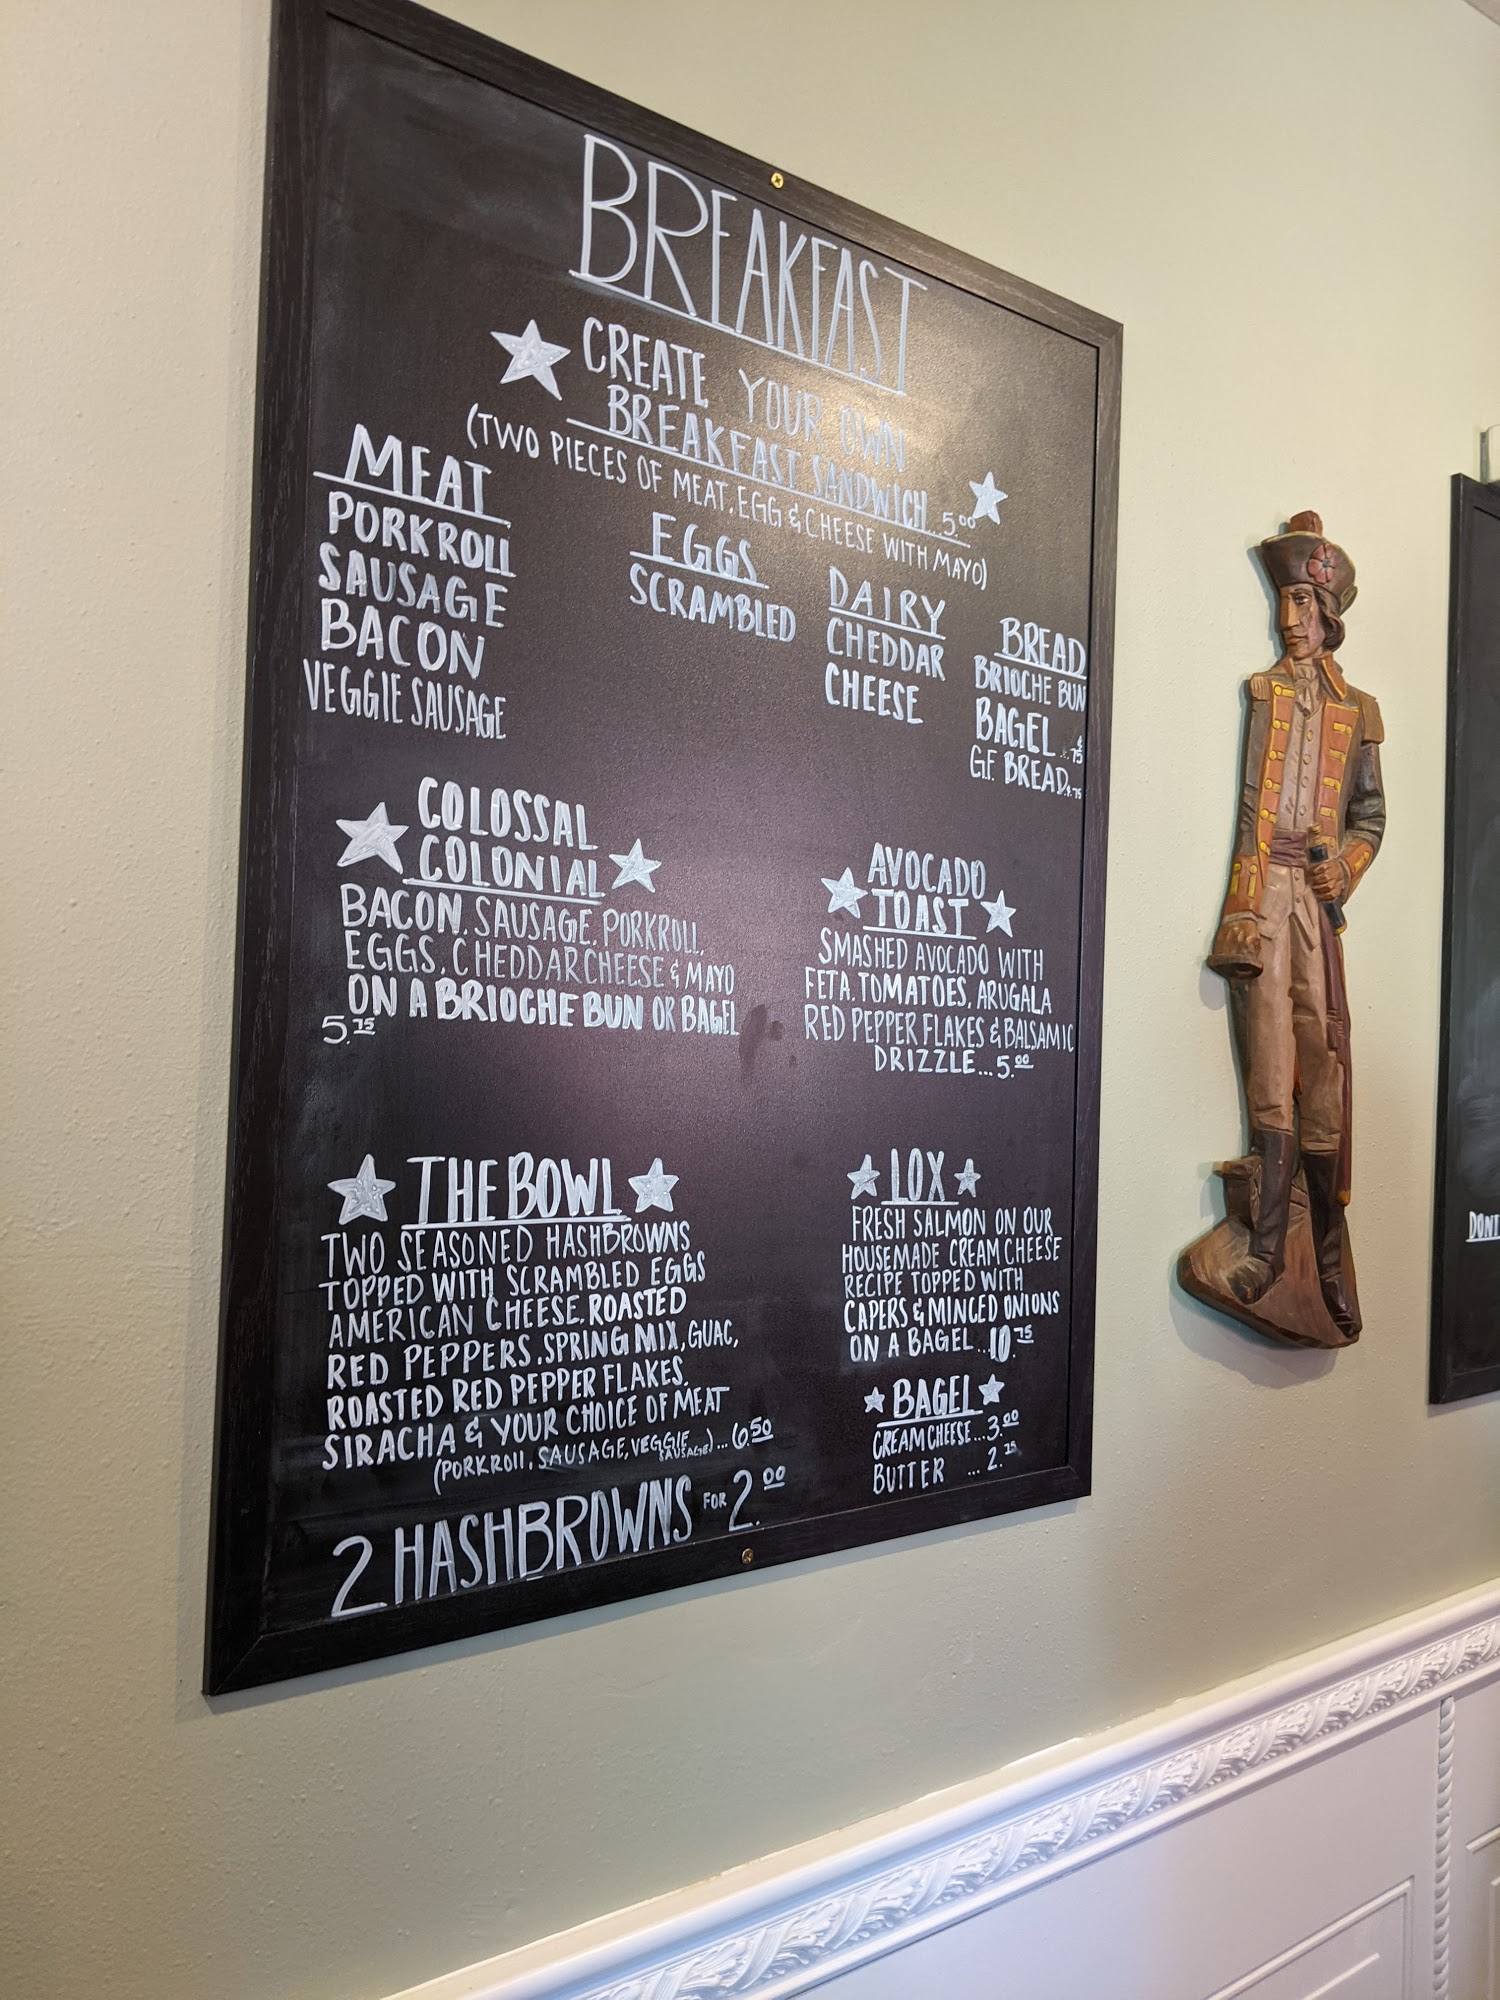 BREAKFAST
CREATE YOUR OWN
BREAKFAST SANDWICH...5.00
(TWO PIECES OF MEAT, EGG & CHEESE WITH MAYO)
MEAT
PORKROLL
SAUSAGE
BACON
VEGGIE SAUSAGE
EGGS
SCRAMBLED
DAIRY
CHEDDAR
CHEESE
BREAD
BRIOCHE BUN
BAGEL ..$.75
G.F. BREAD..$.75
COLOSSAL
COLONIAL
BACON, SAUSAGE, PORKROLL,
EGGS, CHEDDAR CHEESE & MAYO
ON A BRIOCHE BUN OR BAGEL
5.75
AVOCADO
TOAST
SMASHED AVOCADO WITH
FETA, TOMATOES, ARUGALA
RED PEPPER FLAKES & BALSAMIC
DRIZZLE...5.00
THE BOWL
TWO SEASONED HASHBROWNS
TOPPED WITH SCRAMBLED EGGS
AMERICAN CHEESE, ROASTED
RED PEPPERS, SPRING MIX, GUAC,
ROASTED RED PEPPER FLAKES,
SIRACHA & YOUR CHOICE OF MEAT
(PORKROll, SAUSAGE, VEGGIE SAUSAGE)...6.50
2 HASHBROWNS FOR 2.00
LOX
FRESH SALMON ON OUR
HOUSEMADE CREAM CHEESE
RECIPE TOPPED WITH
CAPERS & MINCED ONIONS
ON A BAGEL...10.75
BAGEL
CREAMCHEESE...3.00
BUTTER ...2.25
DONT